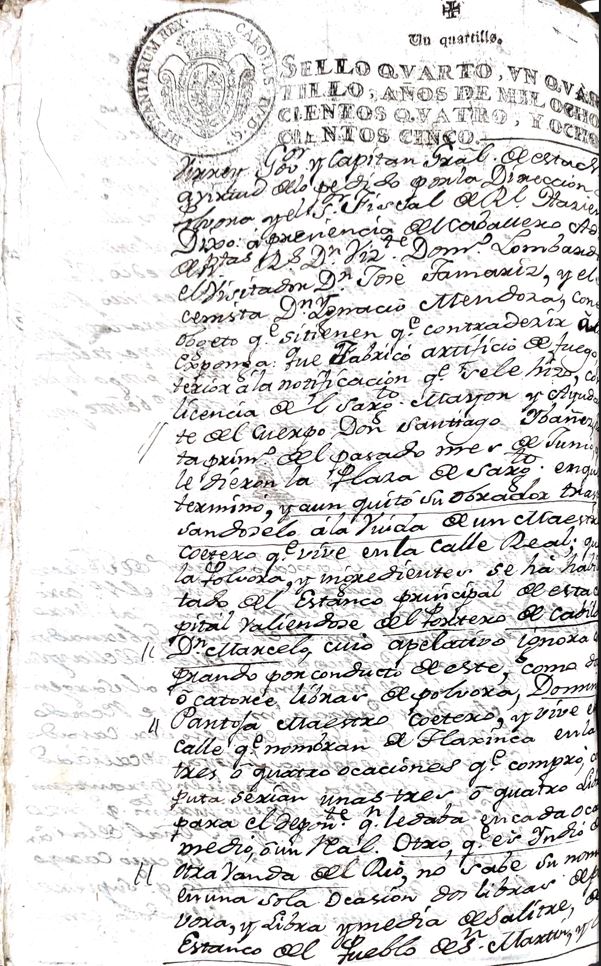 HISPANIARUM REX CAROLUS IV D. G.
Un quartillo.
SELLO QVARTO, VN QVAR
TILLO, AÑOS DE MIL OCHO
CIENTOS QVATRO, Y OCHO
CIENTOS CINCO.
Virrey Gõr y Capitan Gral. de esta
a virtud de lo pedido por la Direccion
y el Sr Fiscal de Rl
Dixo: á precencia del Caballero
Dn Vizte Domz Lombard
el Visitador Dn Jose Tamariz, y el
Dn Ygnacio Mendoza, con
obgeto qe si tienen qe contradezir
exponga: que Fabricó artificio de fuego
terior á la notificacion qe se le hizo, co
licencia del Sargto Mayor y Ayuda
te del Cuerpo Don Santiago Ybañez
ta prim.o del pasado mes de Junio
le dieron la Plaza de Sargto en qu
termino, y aun quitó su obrador tras
sandoselo á la Viuda de un Maestr
Coetero qe vive en la calle Real; qu
la Polvora, y ingredientes se há habi
tado, del Estanco principal de esta ca
pital valiendose del Portero de Cabil
Dn Marcelo, cuio apelativo ignora
prando por conducto de este, como do
ó catorce libras de polvora, Domin
Pantoja Maestro Coetero, y vive e
calle qe nombran de Flaxinca en la
tres ó quatro ocaciones qe compró,
puta serian unas tres ó quatro lib
para el qn le daba en cada oca
medio, ó un Rial. Otro, qe es Yndio
otra Vanda del Rio, no sabe su nom
en una sola Ocasion dos libras de p
vora, y Libra y media de Salitre, de
Estanco del Pueblo de Sn Martin, y